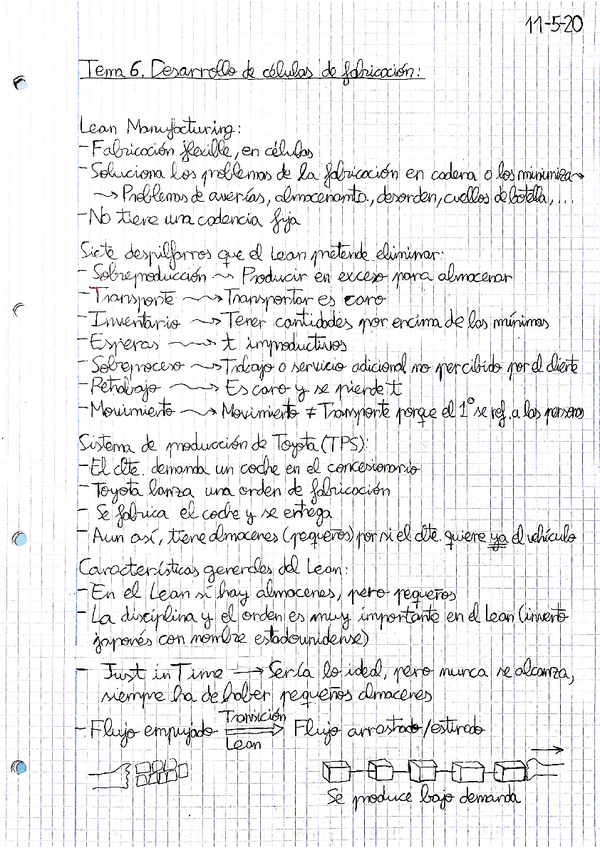 11-5-20
Tema 6. Desarrollo de células de fabricación:
Lean Manufacturing:
- Fabricación flexible, en células
- Soluciona los problemas de la fabricación en cadena o los minimiza
→ Problemas de averías, almacenamto., desorden, cuellos de botella, ...
- No tiene una cadencia fija
Siete despilfarros que el Lean pretende eliminar:
- Sobreproducción → Producir en exceso para almacenar
- Transporte → Transportar es caro
- Inventario → Tener cantidades por encima de las mínimas
- Esperas → t improductivos
- Sobreproceso → Trabajo o servicio adicional no percibido por el cliente
- Retrabajo → Es caro y se pierde t
- Movimiento → Movimiento ≠ Transporte porque el 1º se ref. a las personas
Sistema de producción de Toyota (TPS):
- El clte. demanda un coche en el concesionario
- Toyota lanza una orden de fabricación
- Se fabrica el coche y se entrega
- Aun así, tiene almacenes (pequeños) por si el clte. quiere ya el vehículo
Características generales del Lean:
- En el Lean sí hay almacenes, pero pequeños
- La disciplina y el orden es muy importante en el Lean (invento
japonés con nombre estadounidense)
- Just in Time → Sería lo ideal, pero nunca se alcanza,
siempre ha de haber pequeños almacenes
- Flujo empujado Transición Lean ⇒ Flujo arrastrado/estirado
Se produce bajo demanda